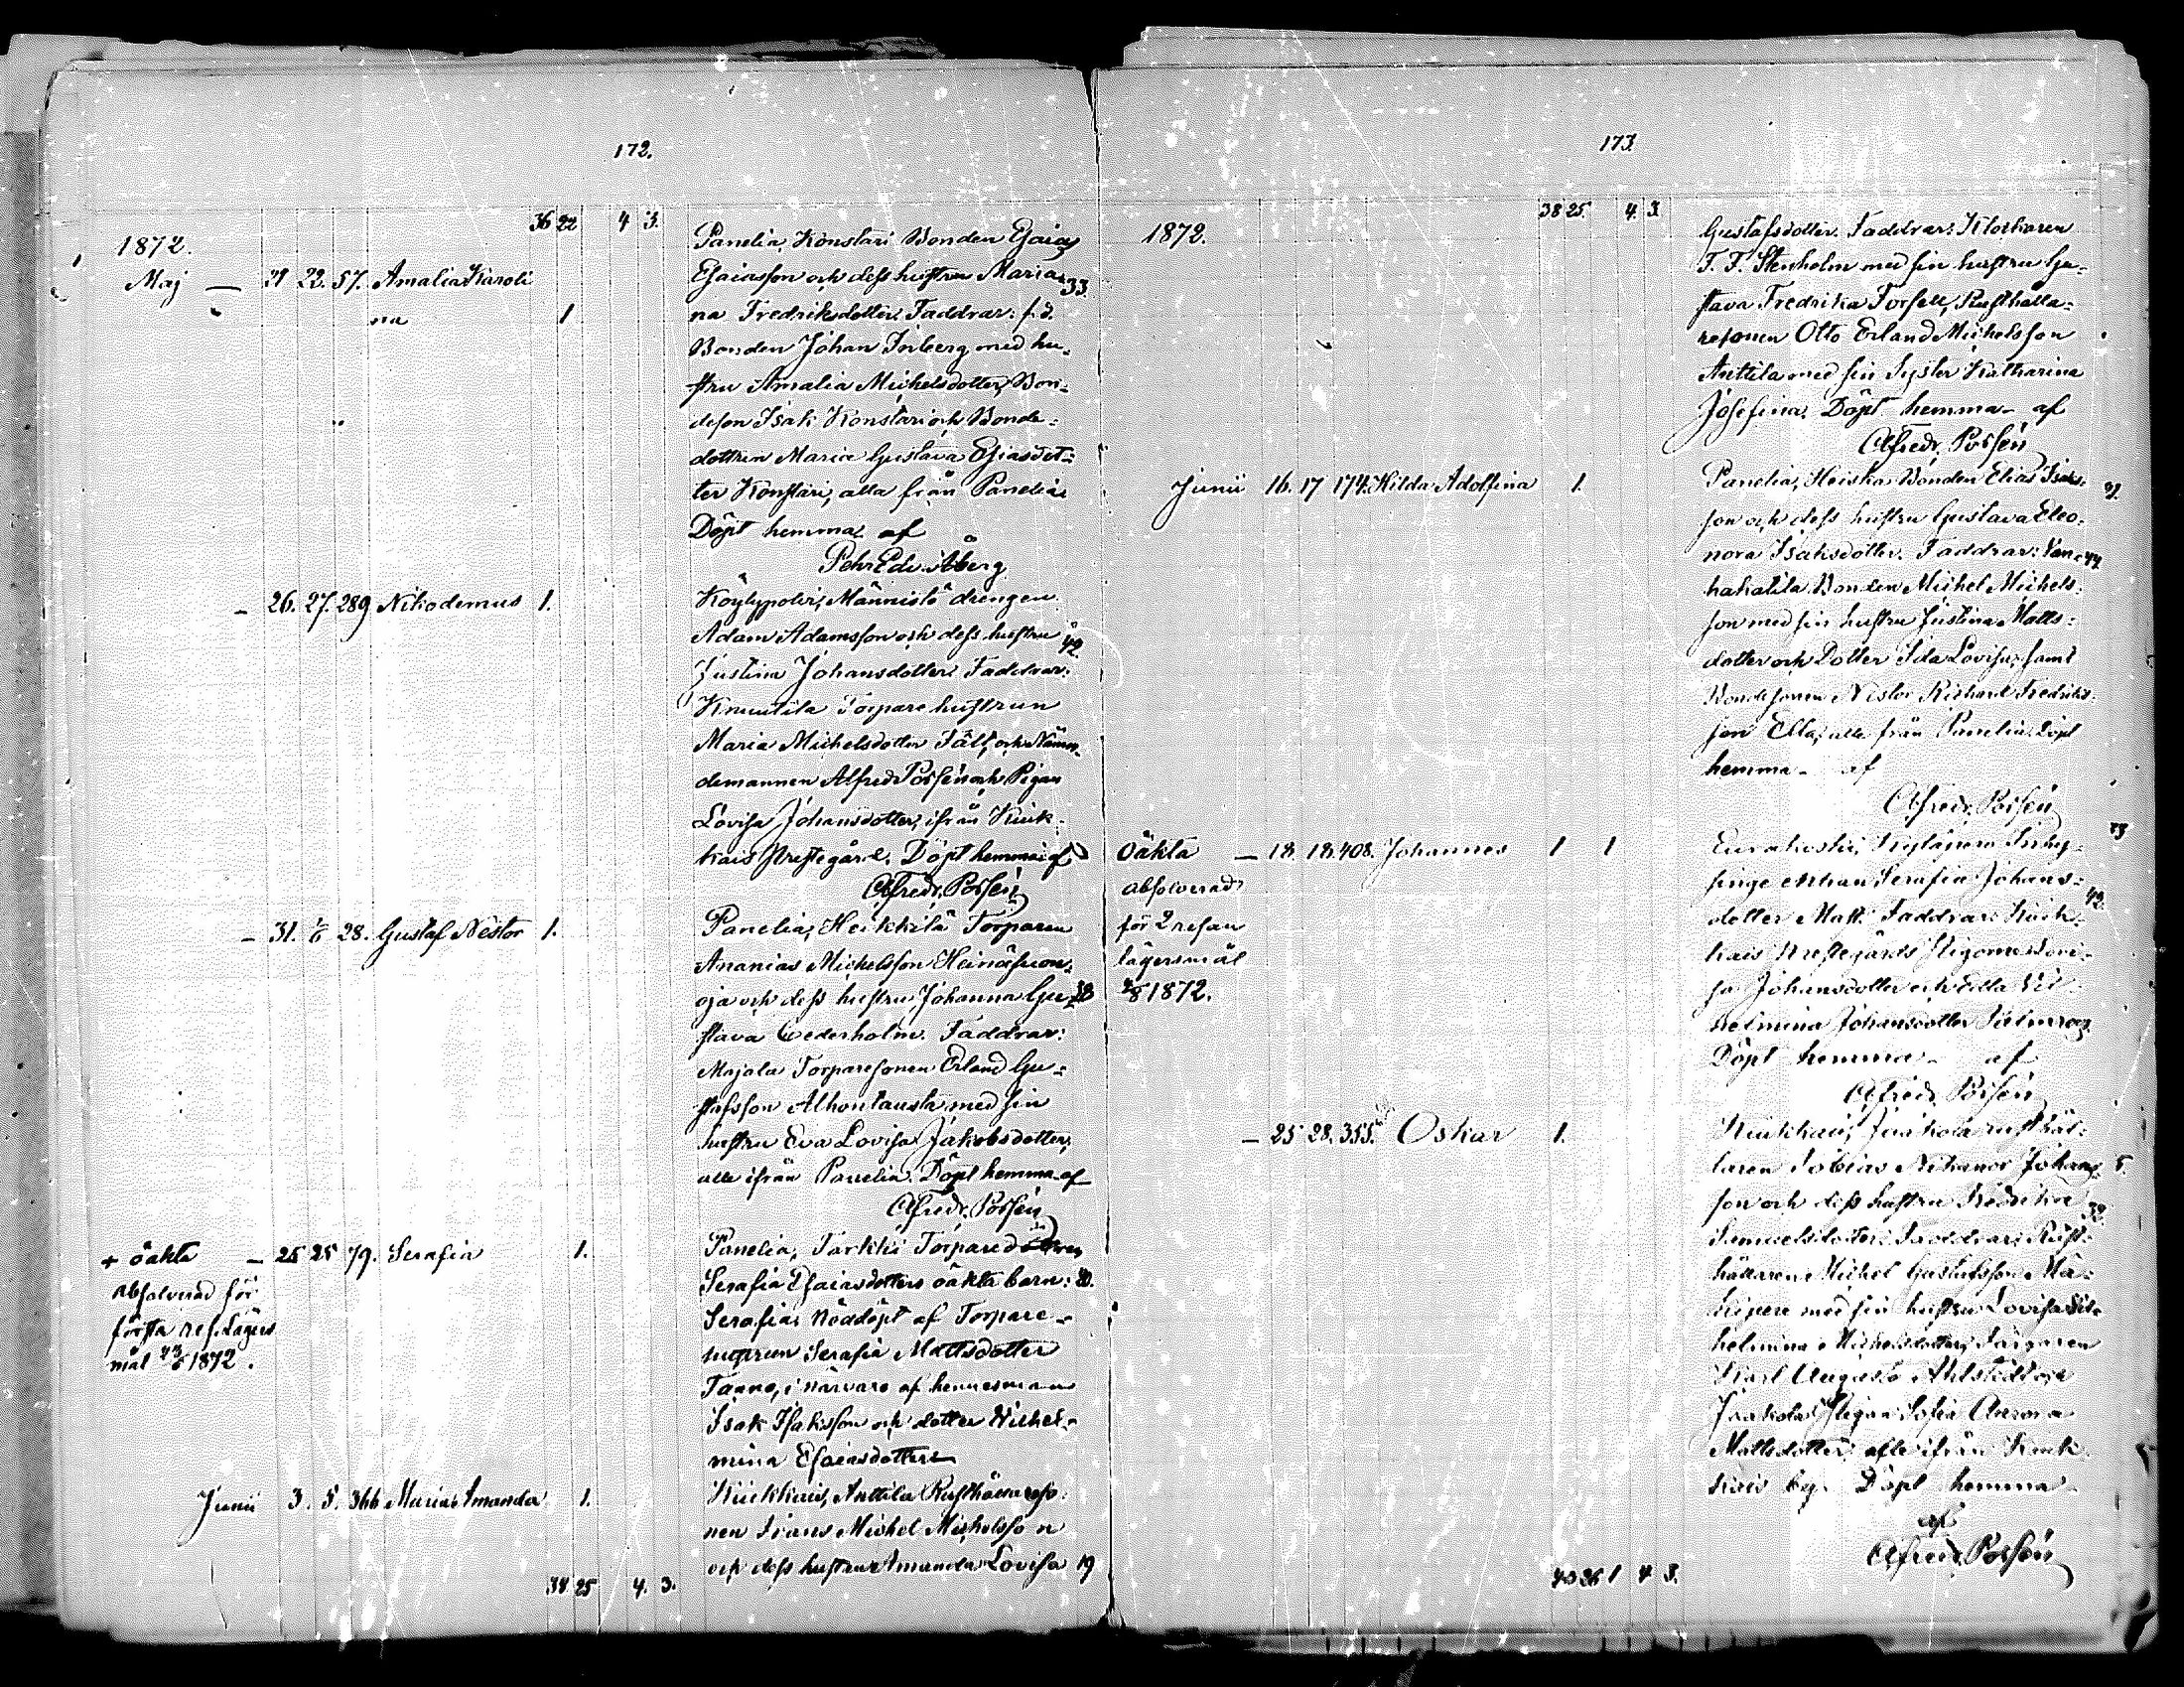 172.
36 22 4 3.
1872.
Maj — 21 23. 57. Amalia Karoli
na 1
Panelia, Konstari Bonden Esaias
Esaiasson och dess hustru Maria 33.
na Fredriksdotter. Faddrar: f.d.
Bonden Johan Inberg med hu-
stru Amalia Michelsdotter, Bon-
deson Isak Konstari och Bonde-
dottren Maria Gustava Esiasdot-
ter Konstari, alla från Panelia.
Döpt hemma af
Pehr Edv. Åberg
— 26. 27. 289 Nikodemus 1.
Köylypolvi, Männistö drengen
Adam Adamsson och dess hustru 42.
Justina Johansdotter. Faddrar:
Knuutila Torpare hustrun
Maria Michelsdotter Fält, och Näm-
demannen Alfred Possén och Pigan
Lovisa Johansdotter, ifrån Kiuk-
kais Prestegård. Döpt hemma af
Alfred. Possén
— 31. 1/6 28. Gustaf Nestor 1.
Panelia, Heikkilä Torparen
Ananias Michelsson Heinäsuon-
oja och dess hustru Johanna Gu- 38
stava Cederholm. Faddrar:
Majala Torparesonen Erland Gu-
stafsson Alhontausta med sin
hustru Eva Lovisa Jakobsdotter,
alle ifrån Panelia. Döpt hemma af
Alfred. Possén
+ oäkta — 25 25 79. Serafia 1.
absolverad för
första res. Lägers
mål 23/6 1872.
Panelia, Tarkki Torpare
Serafia Esaiasdotters oäkta barn: 20.
Serafia, Nöddöpt af Torpare-
hustrun Serafia Mattsdotter
Tanno, i närvaro af hennes man
Isak Isaksson och dotter Wilhel-
mina Esaiasdotter
Junii 3. 5. 366 Maria Amanda 1.
Kiukkais, Anttila Rusthållareso-
nen Frans Michel Michelsson
och dess hustru Amanda Lovisa 19
38 25 4. 3.
173.
38 25. 4. 3.
1872.
Gustafsdotter. Faddrar: Klockaren
F. F. Stenholm med sin hustru Gu-
stava Fredrika Forsell, Rusthålla-
resonen Otto Erland Michelsson
Anttila med sin Syster Katharina
Josefina. Döpt hemma af
Alfred. Possén
Junii 16. 17 174. Hilda Adolfina 1.
Panelia, Heiska Bonden Elias Isaks-
son och dess hustru Gustava Eleo-
nora Isaksdotter. Faddrar: Van- 44
hakatila Bonden Michel Michels-
son med sin hustru Justina Matts-
dotter och Dotter Ida Lovisa, samt
Bondesonen Nestor Richard Fredriks-
son Ella, alle från Panelia. Döpt
hemma af
Alfred. Possén
Oäkta — 18. 18. 408. Johannes 1 1
absolverad
för 2 resan
lägersmål
1872.
Eurakoski, Köyläpere Inhy-
singe enkan Serafia Johans-
dotter Matt. Faddrar: Kiuk- 42.
kais Prestegårds Pigorne Lovi-
sa Johansdotter och Edla Vil-
helmina Johansdotter Palmroos.
Döpt hemma af
Alfred. Possén
— 25 28. 355. Oskar 1.
Kiukkais, Jaakola rusthål-
laren Tobias Nikanor Johans- 5.
son och dess hustru Fredrika 32.
Samuelsdotter. Faddrar: Rust-
hållaren Michel Gustafsson Mä-
kipere med sin hustru Lovisa Vil-
helmina Michelsdotter, Färgaren
Karl August Ahlstedt och
Jaakola Pigan Sofia Aurora
Mattsdotter, alle ifrån Kiuk-
kais by. Döpt hemma
af
Alfred. Possén
40 26 1 4 3.